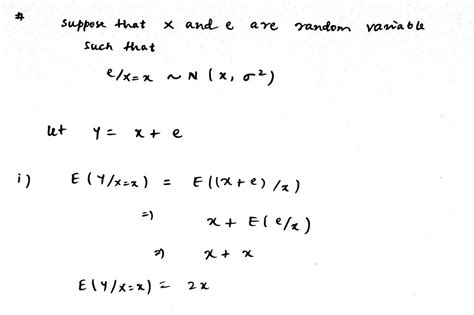 * suppose that x and e are random variable
such that
e/x=x ~ N (x, σ²)
let y = x + e
i) E(Y/x=x) = E((x+e)/x)
=) x + E(e/x)
=) x + x
E(Y/x=x) = 2x